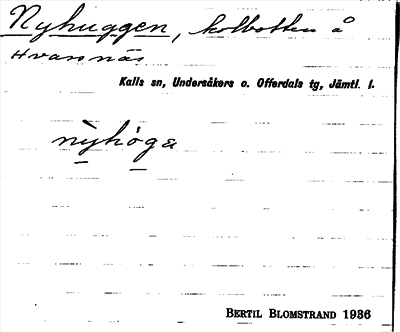 Nyhuggen, kolbotten å
Hvarsnäs
Kalls sn, Undersåkers o. Offerdals tg, Jämtl. l.
nỳhò̱ga
BERTIL BLOMSTRAND 1936